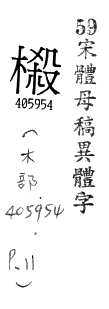 59宋體母稿異體字
榝
405954
(木部
405954
P.11)